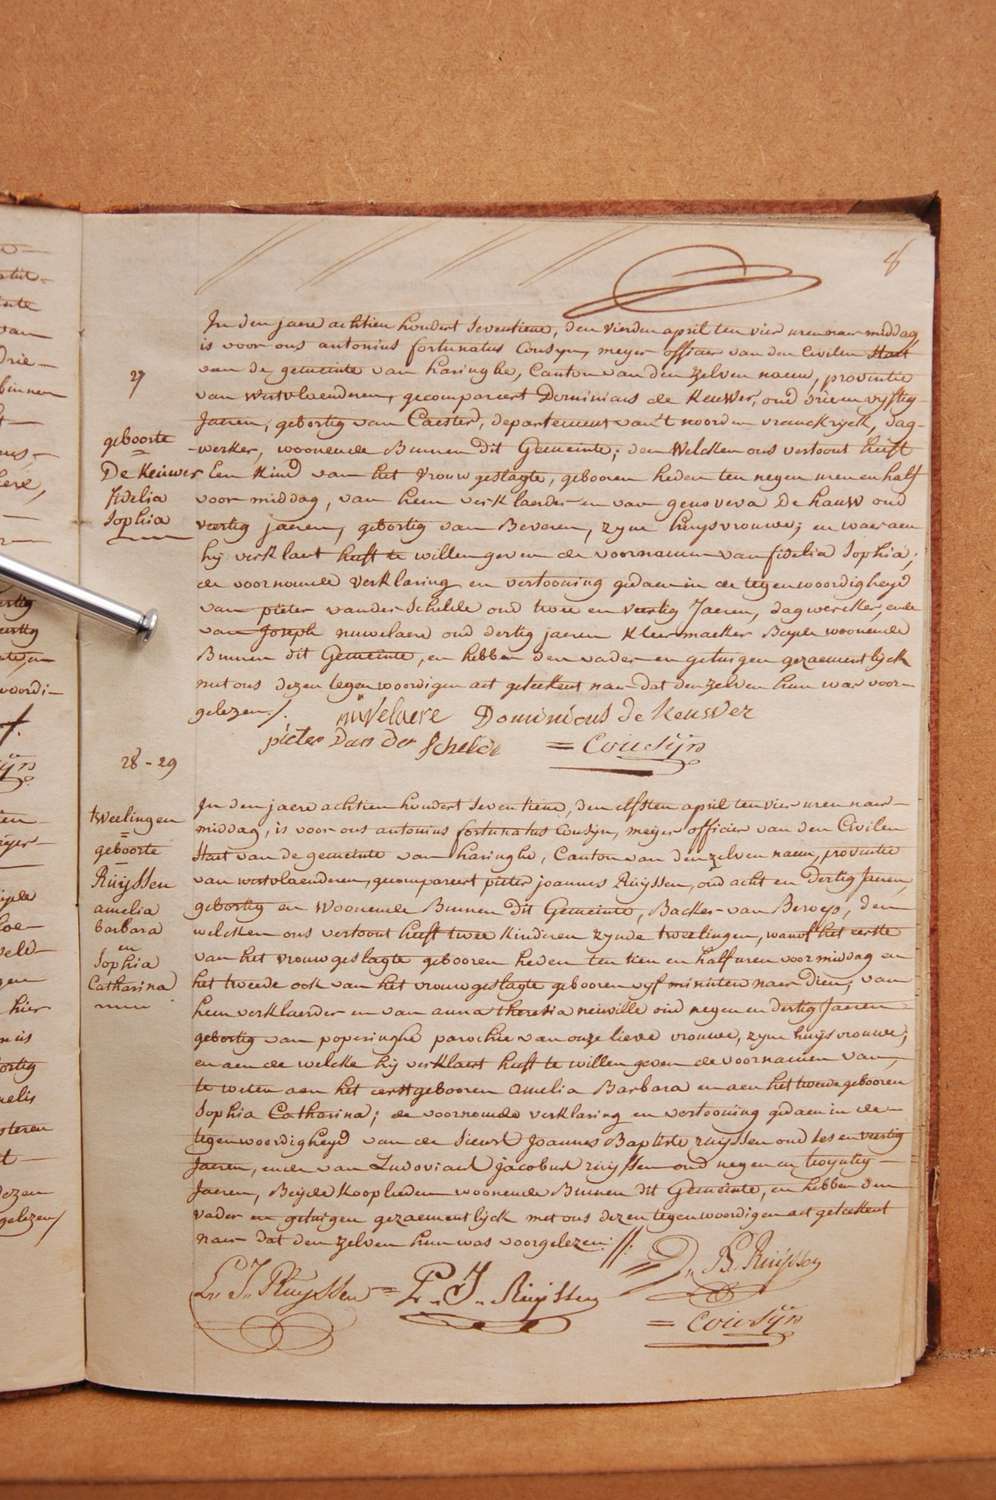 8
27
geboorte
De Keuwer
Fidelia
Sophia
In den jaere achtien hondert seventiene, den vierden april ten vier uren naer middag
is voor ons antonius fortunatus Cousyn, meyer officier van den Civilen Staet
van de gemeente van haringhe, Canton van den zelven naem, provintie
van westvlaenderen, gecompareert Dominicus de Keuwer, oud drie en vyftig
Jaeren, gebortig van Caester, departement van't noorden vranckryck, dag-
-werker, woonende Binnen dit Gemeinte; den Welcken ons vertoont heeft
Een Kind van het vrouw geslagte, gebooren heden ten negen uren en half
voor middag, van hem verklaerder en van genoveva De hauw oud
veertig jaeren, gebortig van Beveren, zyne huysvrouwe; en waer aen
hy verklaert heeft te willen geven de voornamen van fidelia Sophia;
de voornoemde verklaring en vertooning gedaen in de tegenwoordigheyd
van pieter vander Schelde oud twee en veertig Jaeren, dagwercker, ende
van Joseph nuwelaere oud dertig jaeren Kleermaeker Beyde woonende
Binnen dit Gemeinte, en hebben den vader en getuigen gezaementlyck
met ons dezen tegenwoordigen act geteekent naer dat den zelven hun was voor-
gelezen /.
nuvelaere Dominicus de Keuwer
pieter van der Schelde = Cousyn
28 - 29
tweelingen
geboorte
Ruyssen
amelia
barbara
en
Sophia
Catharina
In den jaere achtien hondert seventiene, den elfsten april ten vier uren naer-
middag, is voor ons antonius fortunatus Cousyn, meyer officier van den Civilen
Staet van de gemeinte van haringhe, Canton van den zelven naem, provintie
van westvlaenderen, gecompareert pieter joannes Ruyssen, oud acht en Dertig Jaeren,
gebortig en Woonende Binnen Dit Gemeinte, Backer van Beroep, den
welcken ons vertoont heeft twee kinderen zynde tweelingen, wanof het eerste
van het vrouwgeslagte gebooren heden ten tien en half uren voor middag en
het tweede ook van het vrouwgeslagte gebooren vyf minuten naer dien, van
hem verklaerder en van anna theresia neuville oud negen en dertig Jaeren
gebortig van poperinghe parochie van onze lieve vrouwe, zyne huysvrouwe;
en aen de welcke hy verklaert heeft te willen geven de voornamen van,
te weten aen het eerstgebooren Amelia Barbara en aen het tweede gebooren
Sophia Catharina; de voornoemde verklaring en vertooning gedaen in de
tegenwoordigheyd van de Sieurs Joannes Baptiste ruyssen oud ses en veertig
Jaeren, ende van Ludovicus jacobus ruyssen oud negen en twyntig
Jaeren, Beyde Kooplieden woonende Binnen dit Gemeinte, en hebben den
vader en getuigen gezaementlyck met ons dezen tegenwoordigen act geteekent
naer dat den zelven hun was voorgelezen //.
L. J. Ruyssen = P. J. Ruyssen = J. B. Ruyssen
= Cousyn